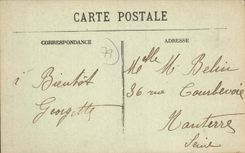 CARTE POSTALE
CORRESPONDANCE
ADRESSE
79
à Bientôt
Georgette
Melle M Belin
36 rue Courbevoie
Nanterre
Seine